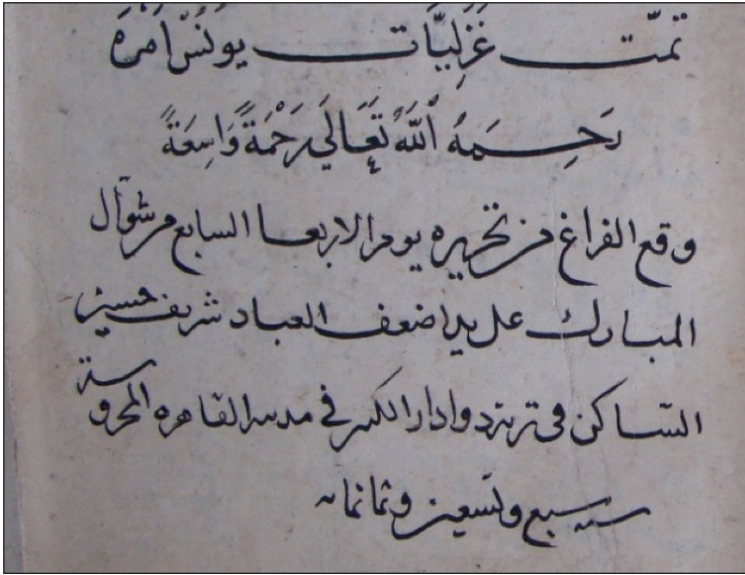 تمّت غزليّات يونس امره
رَحِمَهُ ٱللّه تَعَالَي رَحْمَةً وَاسِعَةً
وقع الفراغ من تحريره يوم الاربعا السابع من شوّال
المبارك على يد اضعف العباد شريف حسين
السّاكن فى دوادار الكبير في مدينه القاهره المحروسة
سبع وتسعين وثمانمايه